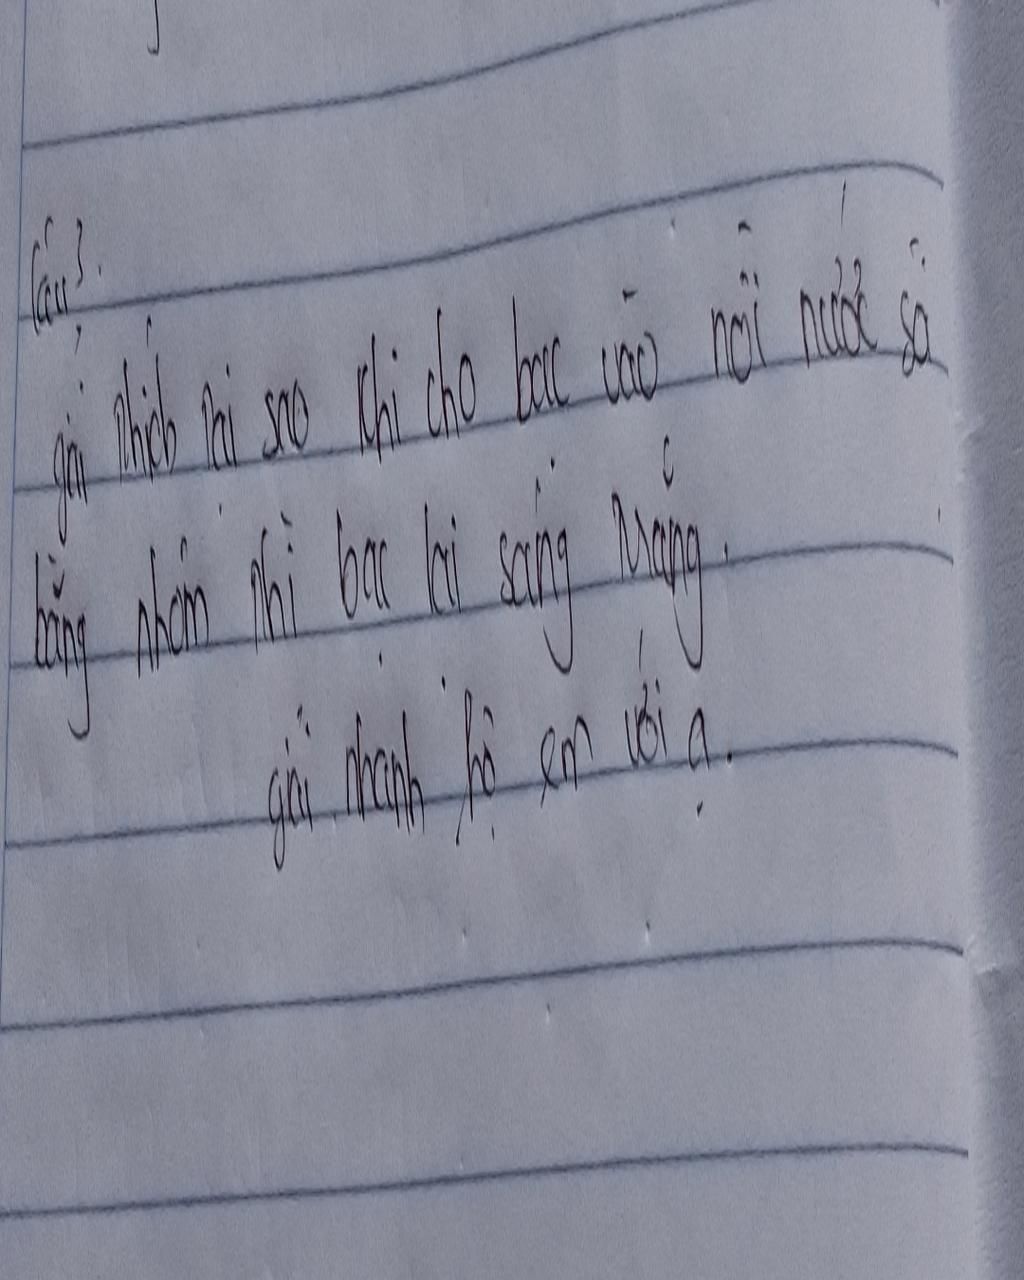 Câu 3.
giải thích tại sao khi cho bạc vào nồi nước sô
bằng nhôm thì bạc lại sáng trắng.
giải nhanh hộ em với ạ.